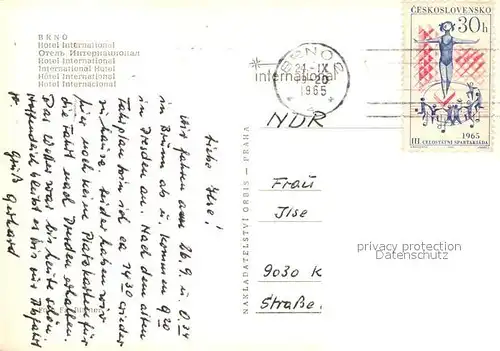 BRNO
Hotel International
Отель Интернационал
Hôtel International
International Hotel
Hotel International
Hotel Internacional
ČESKOSLOVENSKO
30h
1965
III. CELOSTÁTNÍ SPARTAKIÁDA
BRNO 2
24.-IX
-20
1965
international
NAKLADATELSTVÍ ORBIS — PRAHA
Liebe Ilse!
Wir fahren am 26.9. u. 0.34
in Brünn ab u. kommen 9.20
in Dresden an. Nach dem alten
Fahrplan bin ich ca 14.30 wieder
zu Hause. Leider haben wir
hier noch keine Platzkarten für
die Fahrt nach Dresden erhalten.
Das Wetter war bis heute schön.
Hoffentlich bleibt es bis zur Abfahrt
so.
Gruß Gerhard
NDR
Frau
Ilse
9030 K
Straße.
privacy protection
Datenschutz